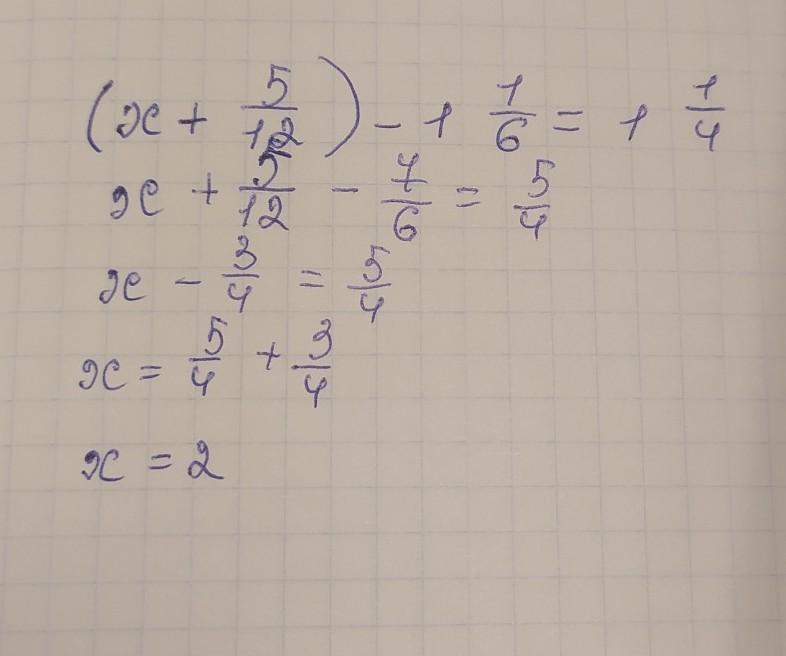 (x + 5/12) - 1 1/6 = 1 1/4
x + 5/12 - 7/6 = 5/4
x - 3/4 = 5/4
x = 5/4 + 3/4
x = 2